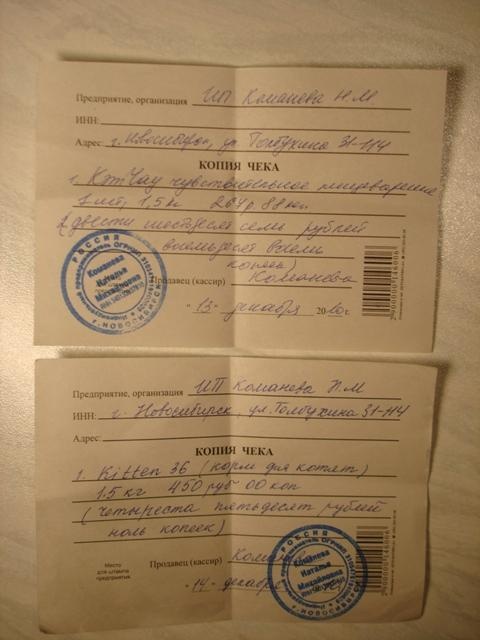 Предприятие, организация ИП Команева Н.М
ИНН:
Адрес: г. Новосибирск, ул. Толбухина 31-114
КОПИЯ ЧЕКА
1. КэтЧау чувствительное пищеварение
1 шт, 1,5 кг 267 р. 88 коп.
(двести шестьдесят семь рублей
восемьдесят восемь
копеек)
Продавец (кассир) Команева
"13" декабря 2010 г
РОССИЯ
Команева
Наталья
Михайловна
г. НОВОСИБИРСК
2900000146006
Предприятие, организация ИП Команева Н.М
ИНН: г. Новосибирск, ул. Толбухина 31-114
Адрес:
КОПИЯ ЧЕКА
1. Kitten 36 (корм для котят)
1.5 кг 450 руб 00 коп
(четыреста пятьдесят рублей
ноль копеек)
Место
для штампа
предприятия
Продавец (кассир)
"14" декабря
РОССИЯ
Команева
Наталья
Михайловна
г. НОВОСИБИРСК
2900000146006